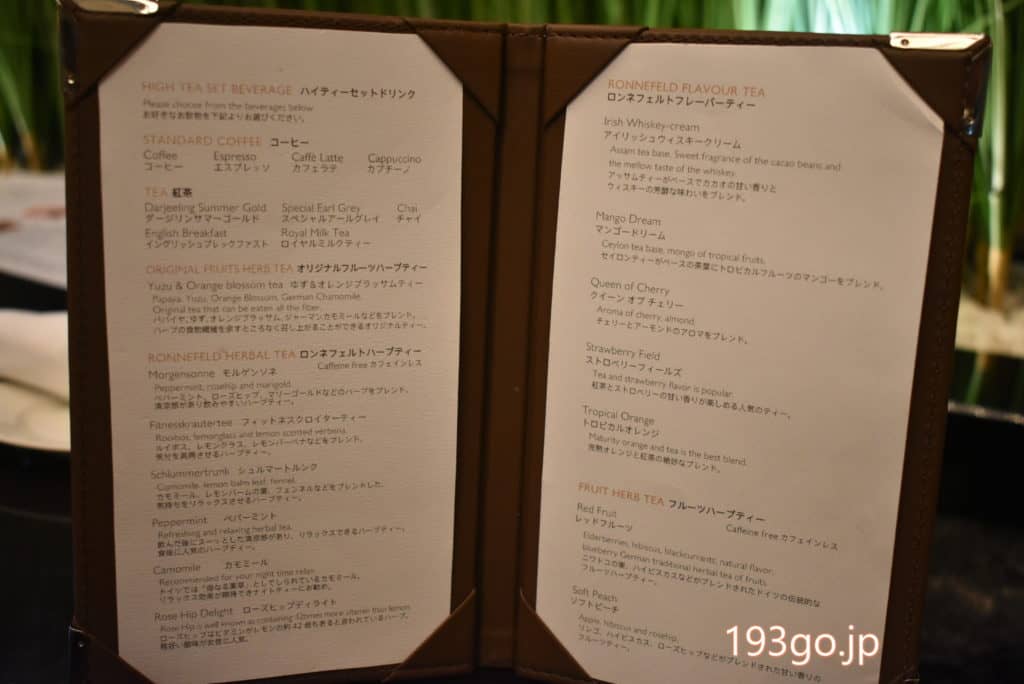 HIGH TEA SET BEVERAGE ハイティーセットドリンク
Please choose from the beverages below
お好きなお飲物を下記よりお選びください。
STANDARD COFFEE コーヒー
Coffee Espresso Caffè Latte Cappuccino
コーヒー エスプレッソ カフェラテ カプチーノ
TEA 紅茶
Darjeeling Summer Gold Special Earl Grey Chai
ダージリンサマーゴールド スペシャルアールグレイ チャイ
English Breakfast Royal Milk Tea
イングリッシュブレックファスト ロイヤルミルクティー
ORIGINAL FRUITS HERB TEA オリジナルフルーツハーブティー
Yuzu & Orange blossom tea ゆず&オレンジブラッサムティー
Papaya, Yuzu, Orange Blossom, German Chamomile.
Original tea that can be eaten all the fiber.
パパイヤ、ゆず、オレンジブラッサム、ジャーマンカモミールなどをブレンド。
ハーブの食物繊維を余すところなく召し上がることができるオリジナルティー。
RONNEFELD HERBAL TEA ロンネフェルトハーブティー
Caffeine free カフェインレス
Morgensonne モルゲンソネ
Peppermint, rosehip and marigold.
ペパーミント、ローズヒップ、マリーゴールドなどのハーブをブレンド。
清涼感があり飲みやすいハーブティー。
Fitnesskrautertee フィットネスクロイターティー
Rooibos, lemongrass and lemon scented verbena.
ルイボス、レモングラス、レモンバーベナなどをブレンド。
気分を高揚させるハーブティー。
Schlummertrunk シュルマートルンク
Camomile, lemon balm leaf, fennel.
カモミール、レモンバームの葉、フェンネルなどをブレンドした、
気持ちをリラックスさせるハーブティー。
Peppermint ペパーミント
Refreshing and relaxing herbal tea.
飲んだ後にスーッとした清涼感があり、リラックスできるハーブティー。
食後に人気のハーブティー。
Camomile カモミール
Recommended for your night time relax.
ドイツでは「母なる薬草」としてしられているカモミール。
リラックス効果が期待できナイトティーにお勧め。
Rose Hip Delight ローズヒップディライト
Rose Hip is well known as containing 42times more vitamin than lemon.
ローズヒップはビタミンがレモンの約42倍もあると言われているハーブ。
程良い酸味が女性に人気。
RONNEFELD FLAVOUR TEA
ロンネフェルトフレーバーティー
Irish Whiskey-cream
アイリッシュウィスキークリーム
Assam tea base. Sweet fragrance of the cacao beans and
the mellow taste of the whiskey.
アッサムティーがベースでカカオの甘い香りと
ウィスキーの芳醇な味わいをブレンド。
Mango Dream
マンゴードリーム
Ceylon tea base, mongo of tropical fruits.
セイロンティーがベースの茶葉にトロピカルフルーツのマンゴーをブレンド。
Queen of Cherry
クイーン オブ チェリー
Aroma of cherry, almond.
チェリーとアーモンドのアロマをブレンド。
Strawberry Field
ストロベリーフィールズ
Tea and strawberry flavor is popular.
紅茶とストロベリーの甘い香りが楽しめる人気のティー。
Tropical Orange
トロピカルオレンジ
Maturity orange and tea is the best blend.
完熟オレンジと紅茶の絶妙なブレンド。
FRUIT HERB TEA フルーツハーブティー
Red Fruit Caffeine free カフェインレス
レッドフルーツ
Elderberries, hibiscus, blackcurrants, natural flavor,
blueberry German traditional herbal tea of fruits.
ニワトコの葉、ハイビスカスなどがブレンドされたドイツの伝統的な
フルーツハーブティー。
Soft Peach
ソフトピーチ
Apple, hibiscus and rosehip.
リンゴ、ハイビスカス、ローズヒップなどがブレンドされた甘い香りの
フルーツティー。
193go.jp